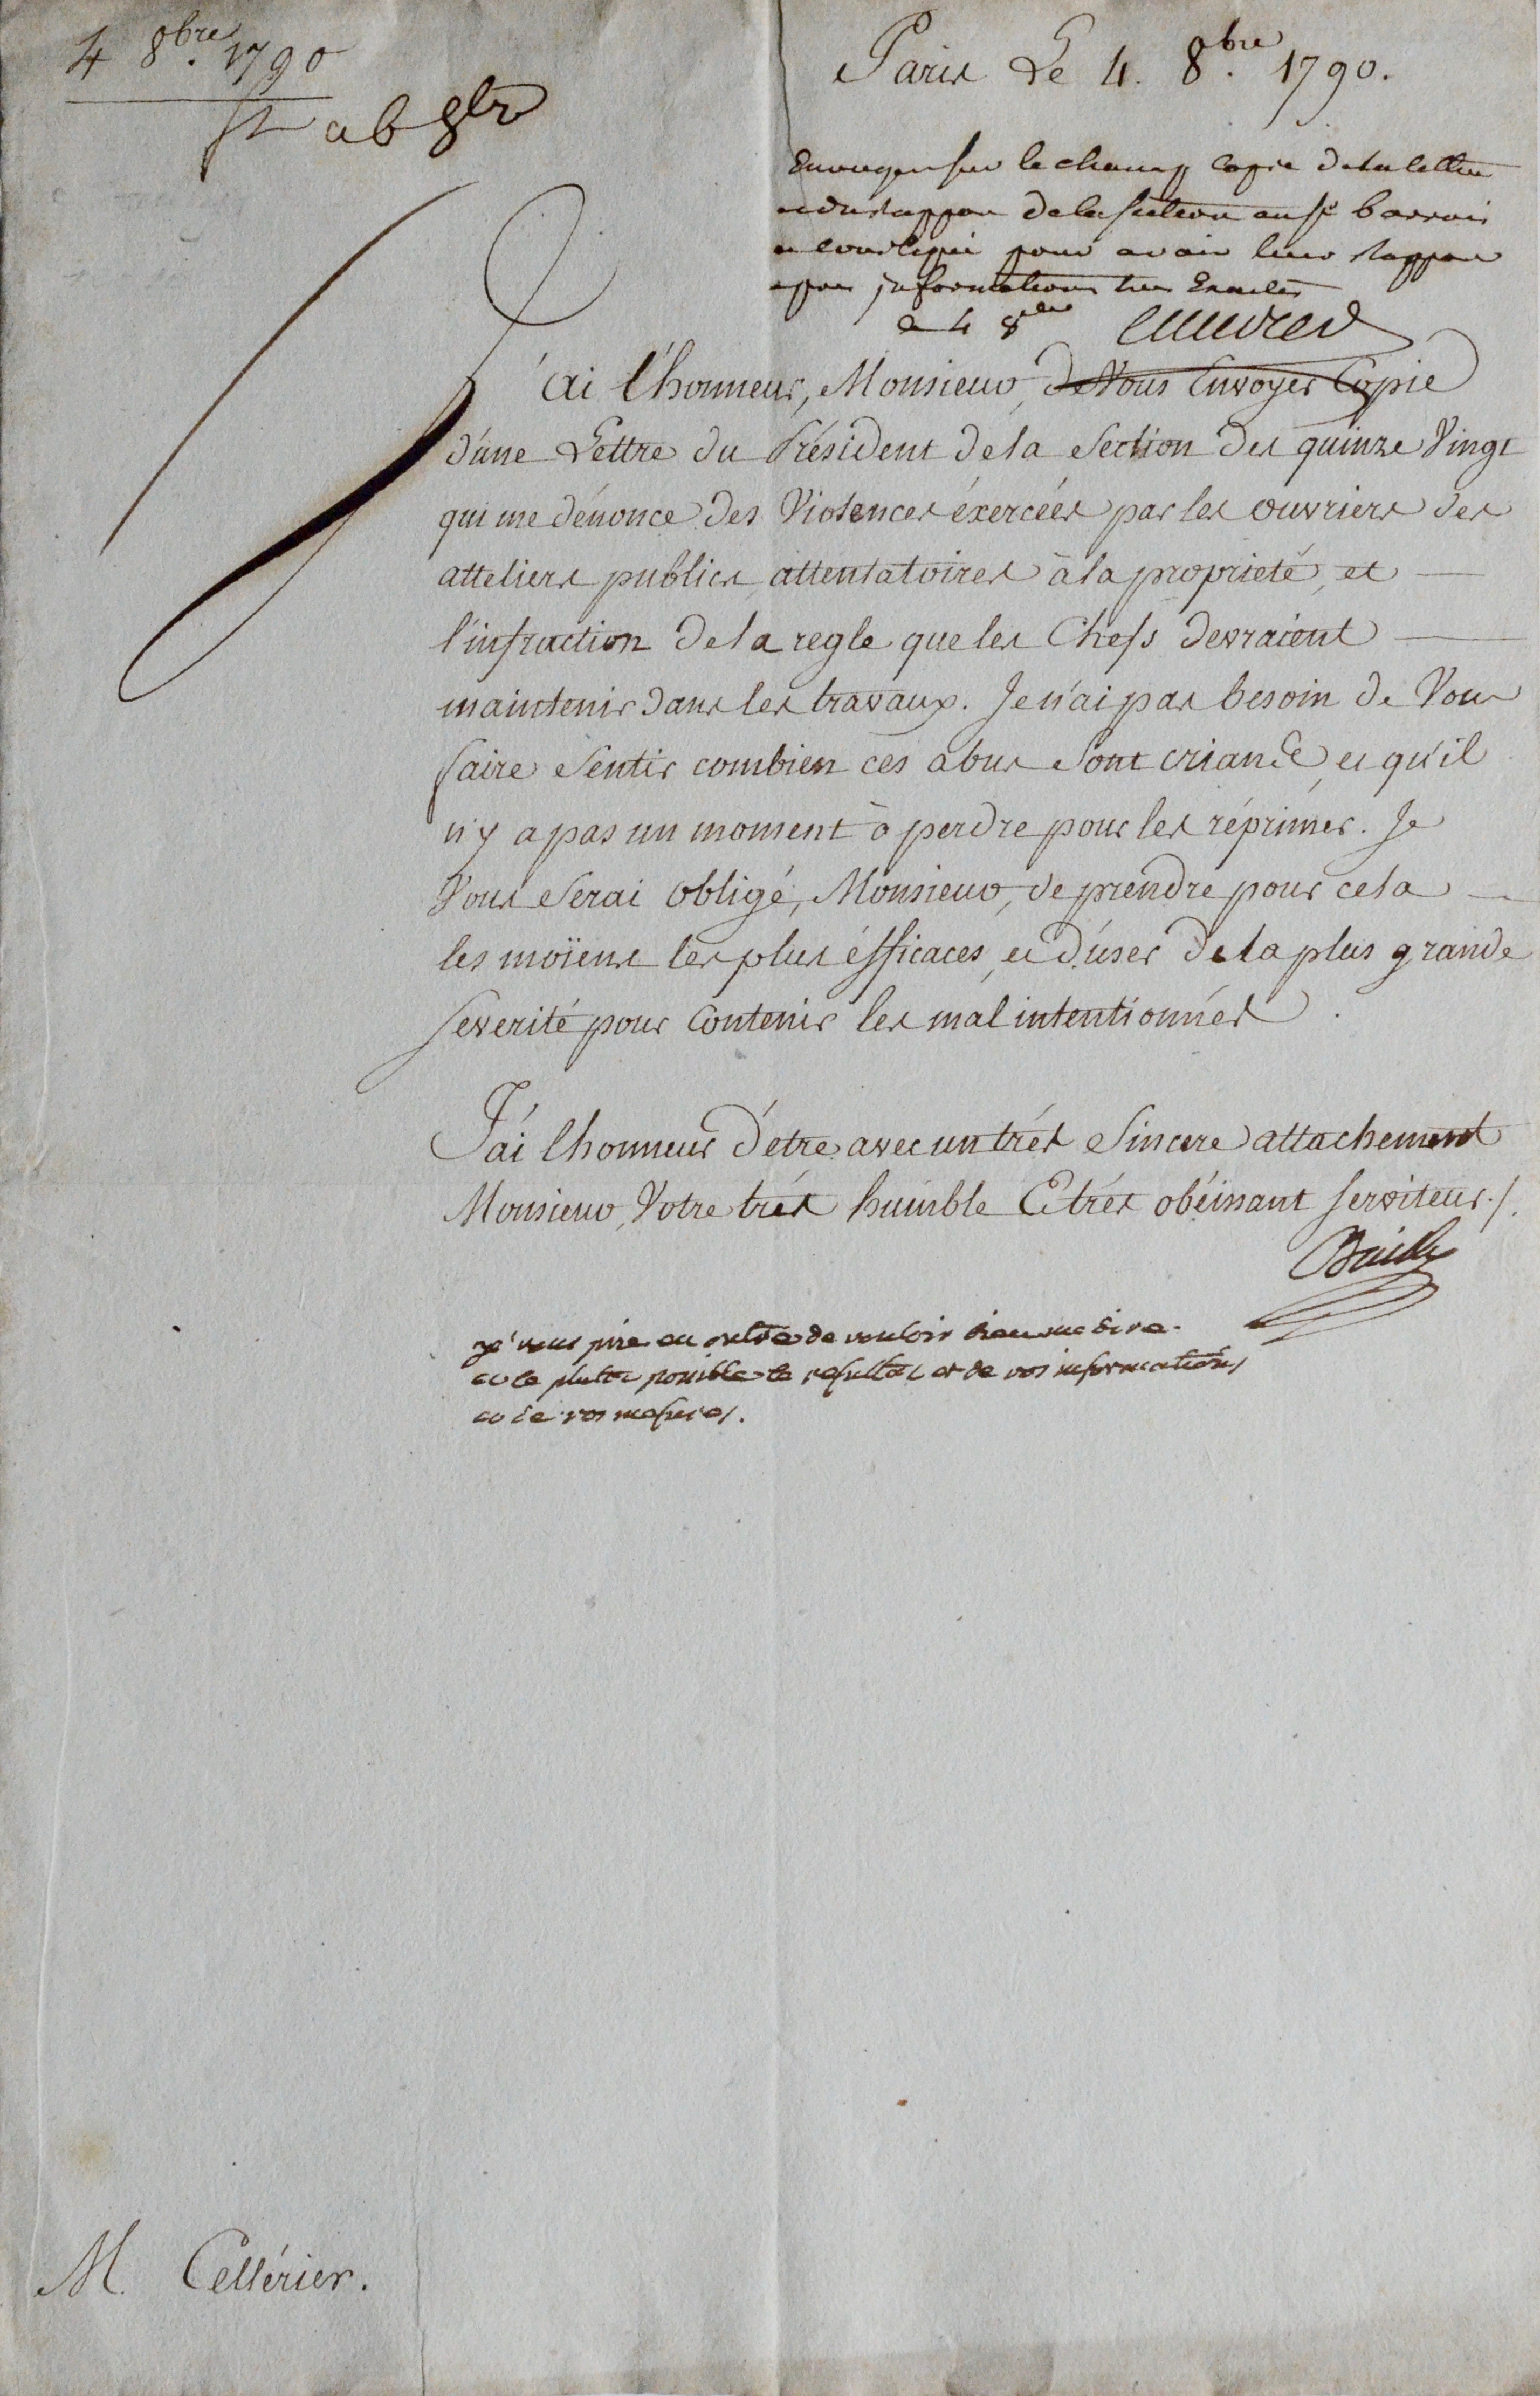 4 8bre. 1790
ab
Paris Le 4. 8bre. 1790.
Envoyer sur le champ Copie de la lettre
et du rapport de la section au Sr barrois
et pour avoir leur rapport
informations tres Exactes
Le 4 8bre
J'ai l'honneur, Monsieur, de Vous Envoyer Copie
d'une Lettre du Président de la Section des quinze Vingt
qui me dénonce des Violences éxercées par les ouvriers des
atteliers publics, attentatoires à la propriété, et
l'infraction de la regle que les Chefs devraient
maintenir dans les travaux. Je n'ai pas besoin de Vous
faire Sentir combien ces abus Sont criands, et qu'il
n'y a pas un moment à perdre pour les réprimer. Je
Vous Serai obligé, Monsieur, de prendre pour cela
les moïens les plus éfficaces, et d'user de la plus grande
severité pour Contenir les mal intentionnés.
J'ai lhonneur d'etre avec un très Sincere attachement
Monsieur, Votre très humble Et très obéissant serviteur./.
Bailly
je vous prie en outre de vouloir bien me dire
au le plutot possible le resultat et de vos informations
et de vos mesures.
M. Cellérier.